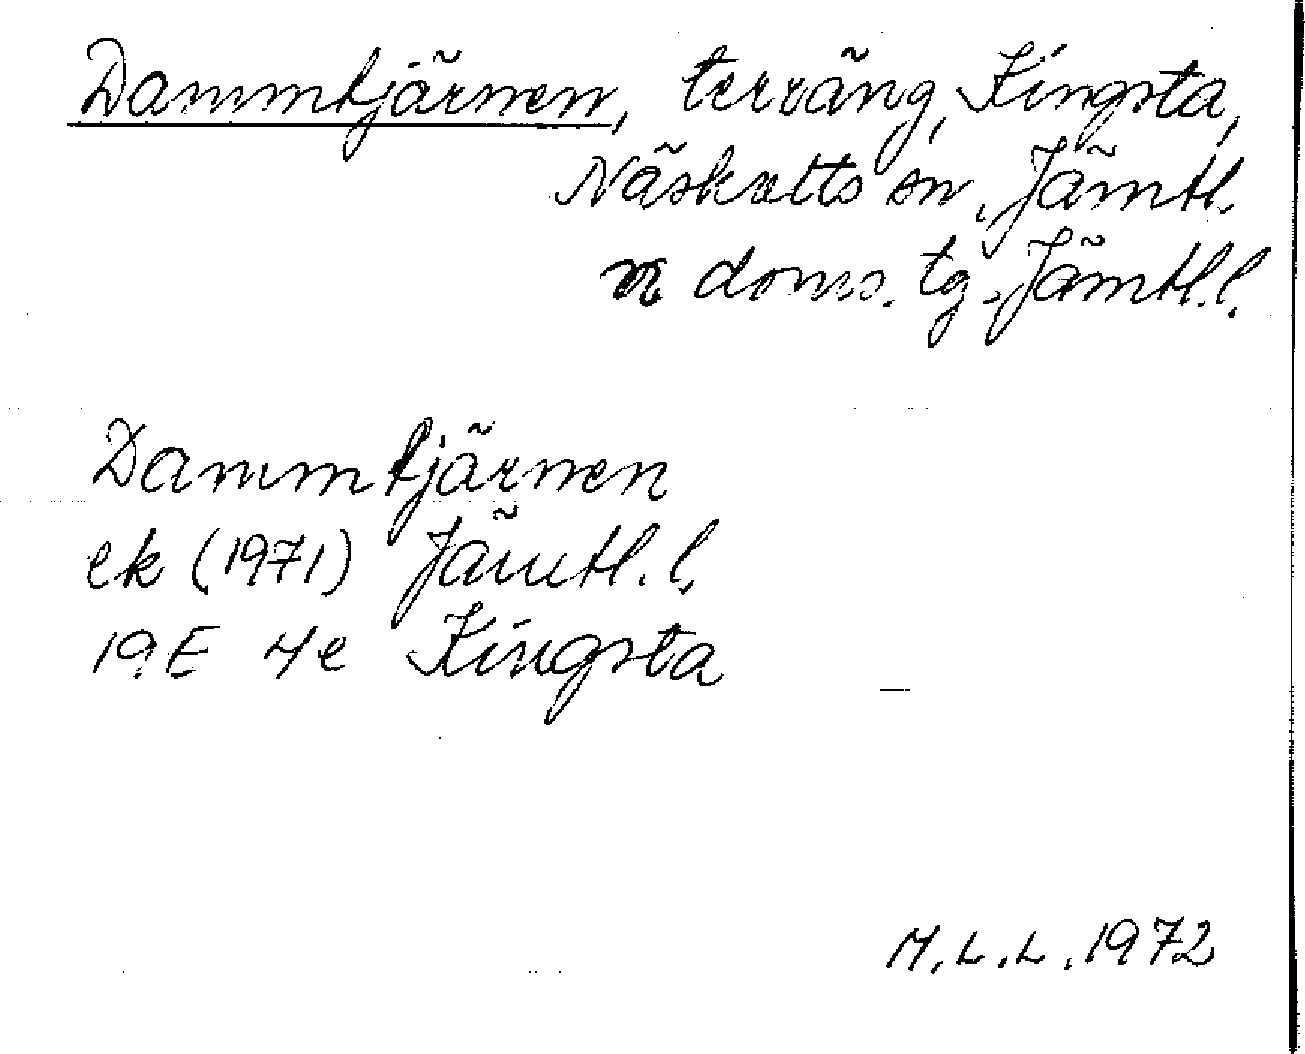 Dammtjärnen, terräng, Kingsta,
Näskotts sn, Jämtl.
v doms. tg. Jämtl. l.
Dammtjärnen
ek (1971) Jämtl. l.
19E 4e Kingsta
M.L.L. 1972